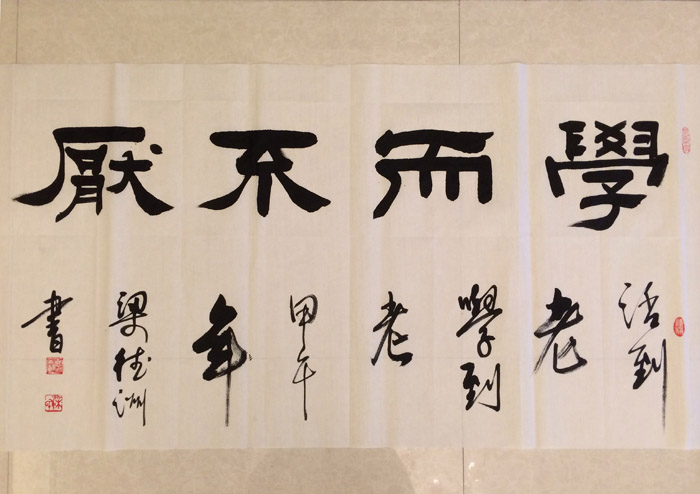 學而不厭
活到
老
學到
老
甲午
年
梁洲
書